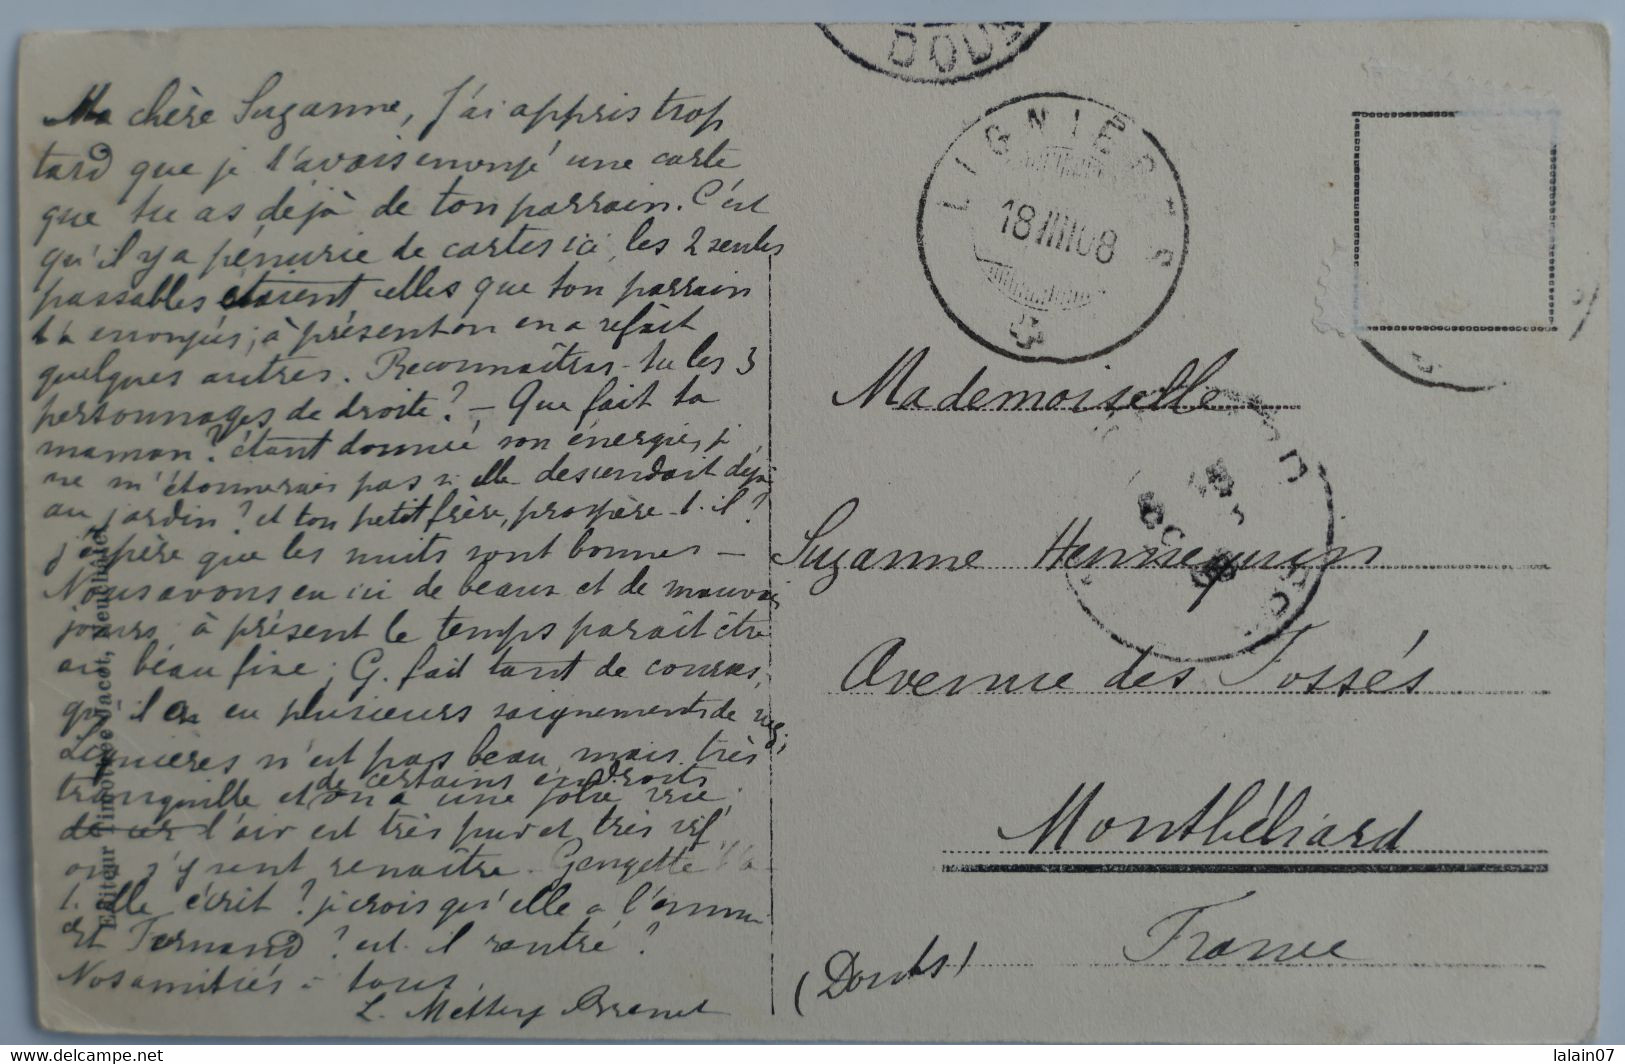 Ma chère Suzanne, J'ai appris trop
tard que je t'avais envoyé une carte
que tu as déjà de ton parrain. C'est
qu'il y a pénurie de cartes ici, les 2 seules
passables étaient celles que ton parrain
t'a envoyées; à présent on en a refait
quelques autres. Reconnaîtras-tu les 3
personnages de droite? — Que fait ta
maman? étant donnée son énergie, je
ne m'étonnerais pas si elle descendait déjà
au jardin? et ton petit frère, prospère-t-il?
j'espère que les nuits sont bonnes —
Nous avons eu ici de beaux et de mauvais
jours, à présent le temps paraît être
au beau fixe; G. fait tant de courses,
qu'il a eu plusieurs saignements de nez;
Lignières n'est pas beau, mais très
tranquille et de certains endroits on a une jolie vue;
l'air est très pur et très vif
on s'y sent renaître. Georgette t'a-
t-elle écrit? je crois qu'elle a l'ennui
et Fernand? est-il rentré?
Nos amitiés à tous.
L. Mettey
Editeur Timothée Jacot, Neuchâtel
DOU
LIGNIÈRES
18 III 08
Mademoiselle
Suzanne Hennequin
Avenue des Fossés
Montbéliard
France
(Doubs)
https://www.delcampe.net
lalain07